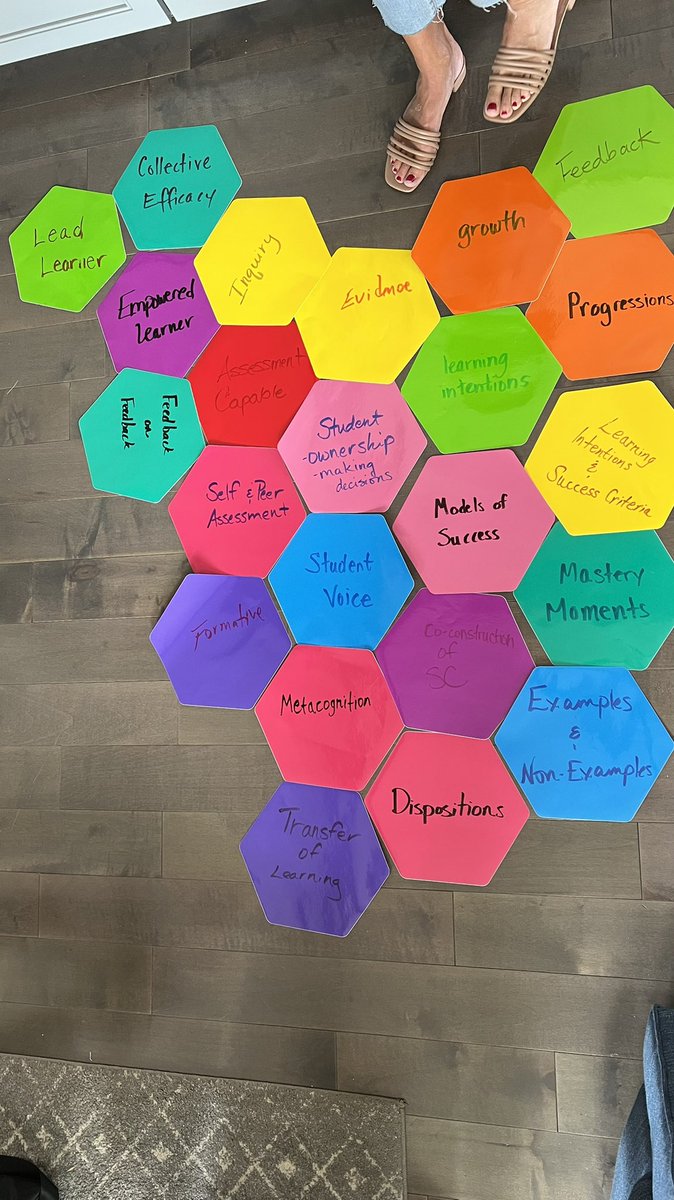 Collective
Efficacy
Feedback
Lead
Learner
Inquiry
growth
Empowered
learner
Evidence
Progressions
Assessment
Capable
learning
intentions
Feedback
on
Feedback
Student
-ownership
-making
decisions
Learning
Intentions
&
Success Criteria
Self & Peer
Assessment
Models of
Success
Student
Voice
Mastery
Moments
Formative
Co-construction
of
SC
Metacognition
Examples
&
Non-Examples
Dispositions
Transfer
of
Learning